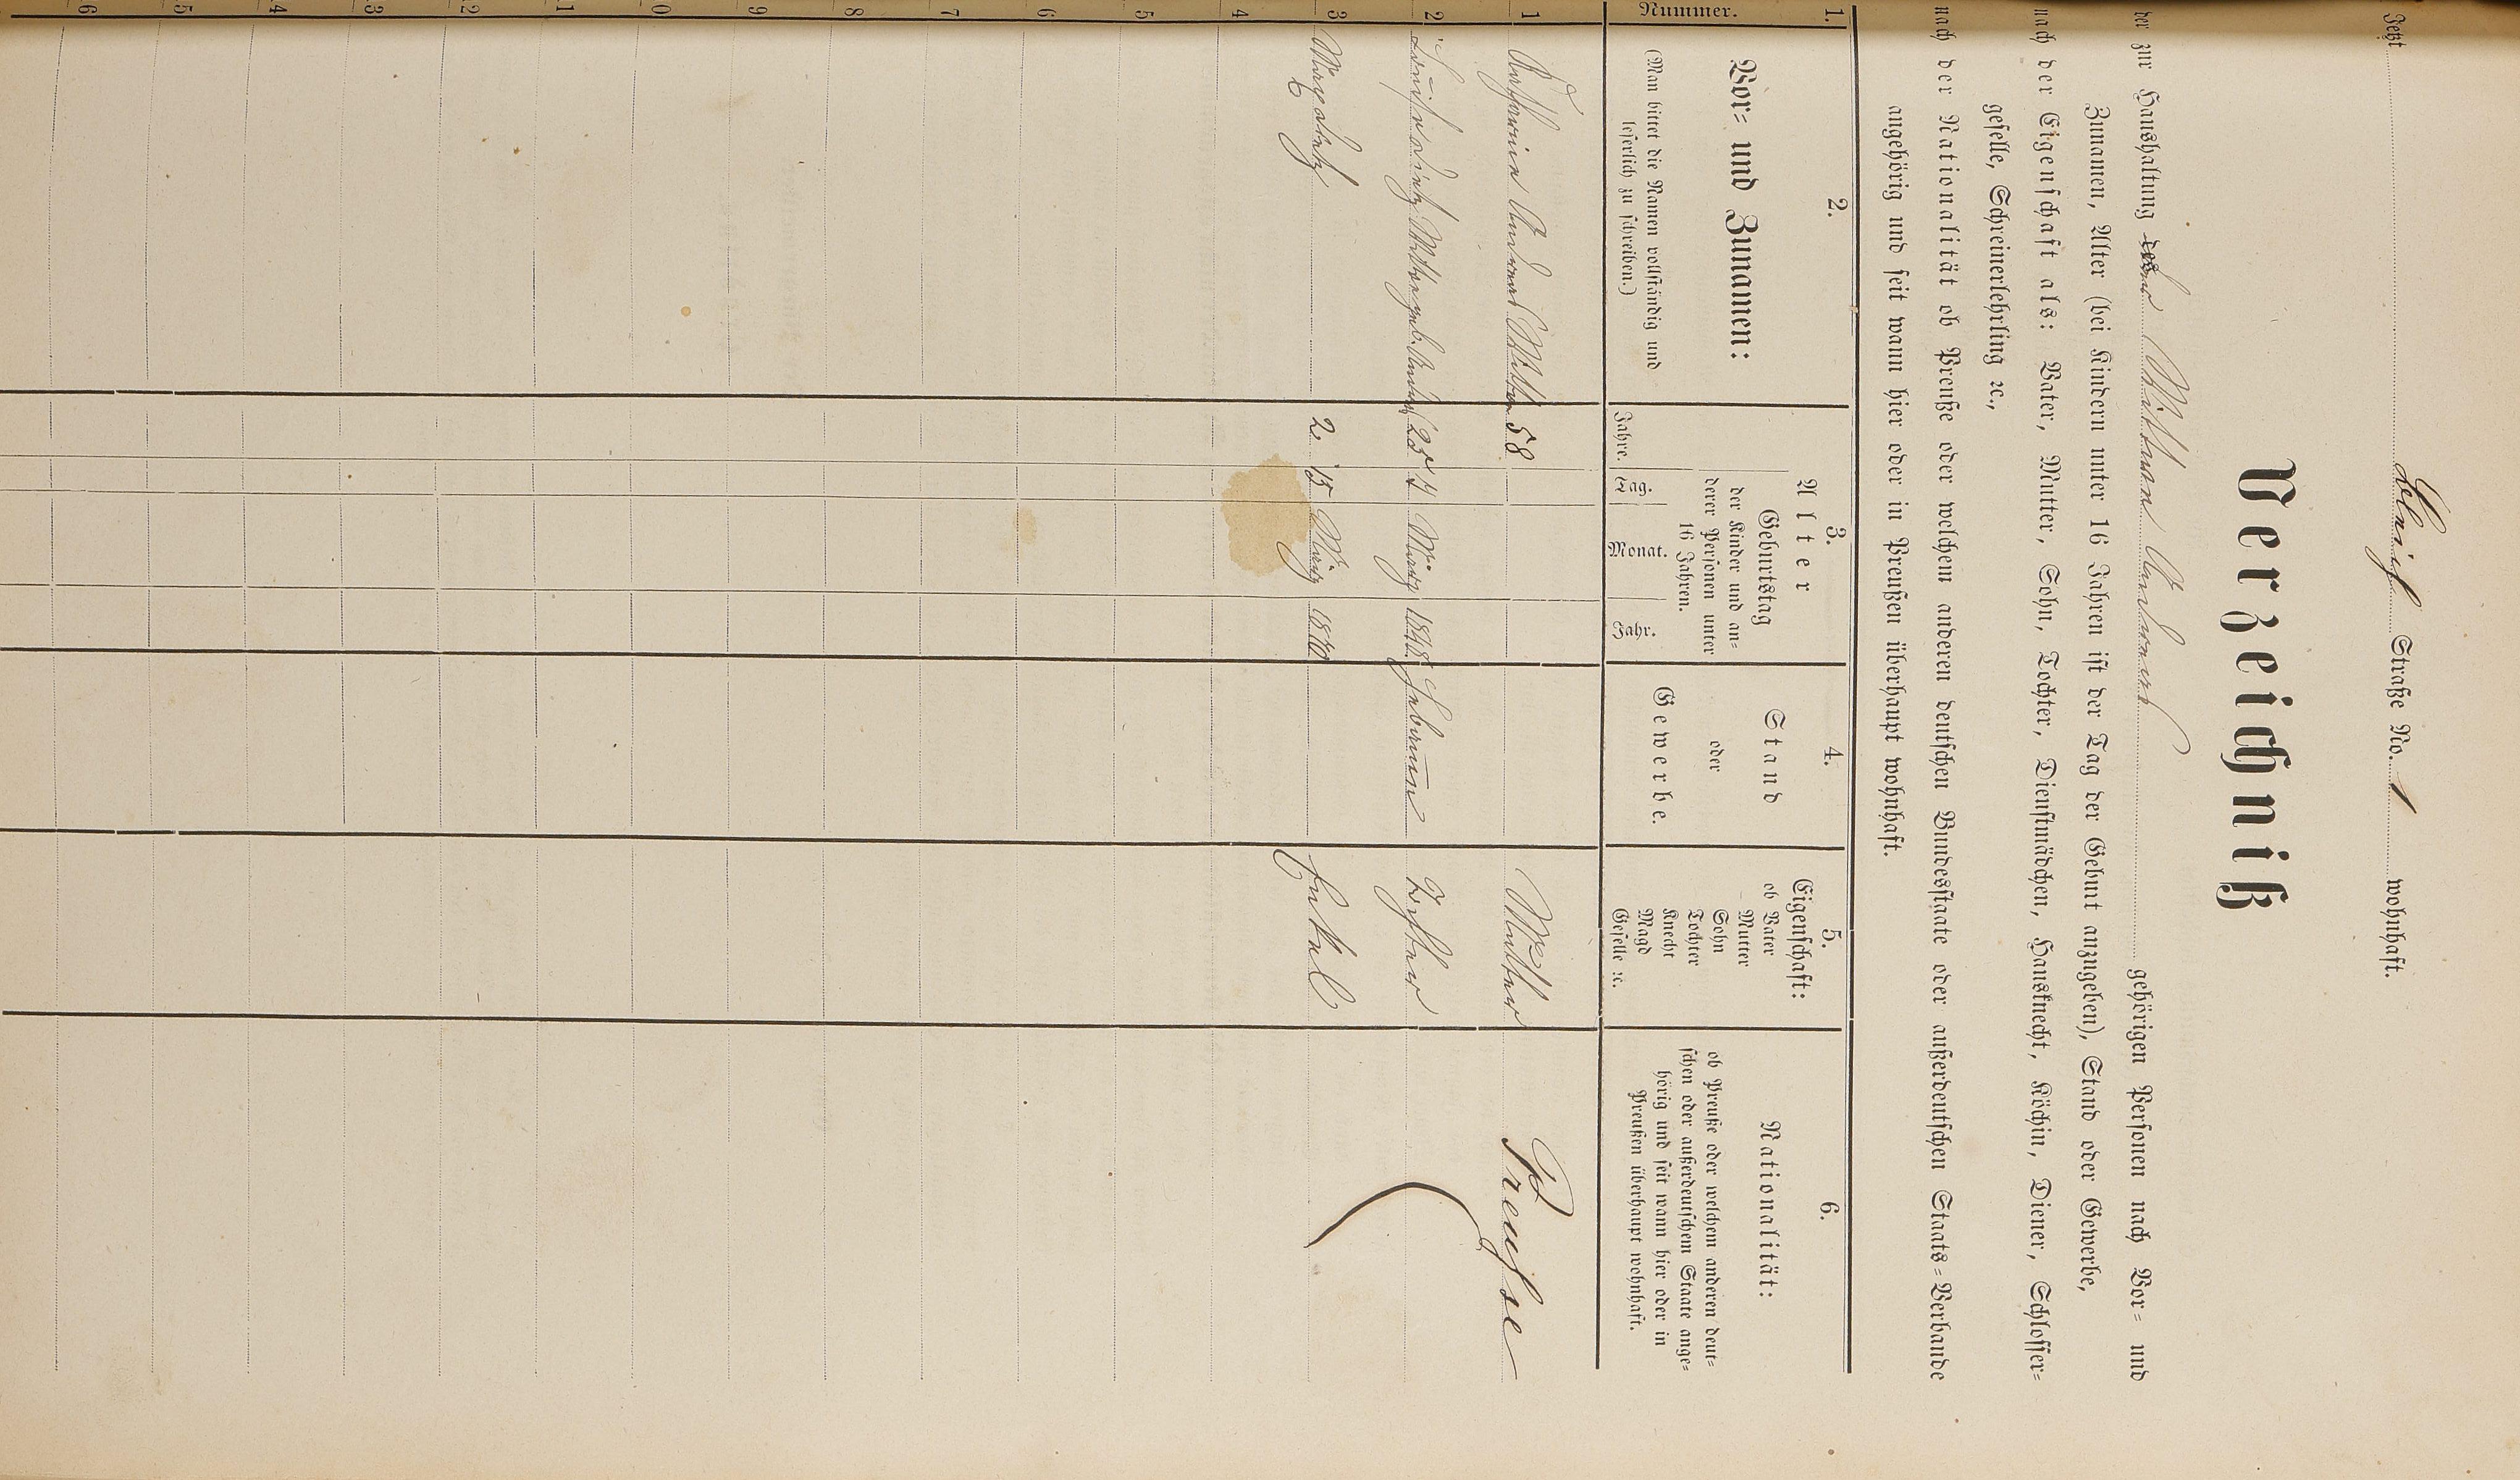 Jetzt Straße No. 1 wohnhaft.
Verzeichniß
der zur Haushaltung des Wittwe gehörigen Personen nach Vor- und
Zunamen, Alter (bei Kindern unter 16 Jahren ist der Tag der Geburt anzugeben), Stand oder Gewerbe,
nach der Eigenschaft als: Vater, Mutter, Sohn, Tochter, Dienstmädchen, Hausknecht, Köchin, Diener, Schlosser-
geselle, Schreinerlehrling ꝛc.,
nach der Nationalität ob Preuße oder welchem anderen deutschen Bundesstaate oder außerdeutschen Staats-Verbande
angehörig und seit wann hier oder in Preußen überhaupt wohnhaft.
1. 2. 3. 4. 5. 6.
Nummer.
Vor- und Zunamen:
(Man bittet die Namen vollständig und
leserlich zu schreiben.)
Alter
Geburtstag
der Kinder und an-
derer Personen unter
16 Jahren.
Jahre. Tag. Monat. Jahr.
Stand
oder
Gewerbe.
Eigenschaft:
ob Vater
Mutter
Sohn
Tochter
Knecht
Magd
Geselle ꝛc.
Nationalität:
ob Preuße oder welchem anderen deut-
schen oder außerdeutschem Staate ange-
hörig und seit wann hier oder in
Preußen überhaupt wohnhaft.
1 Wittwe 58 Mutter Preuſse
2 geb. 25 März 1848 Tochter
3 2 15 März 1870 Enkel
4
5
6
7
8
9
0
1
2
3
4
5
6